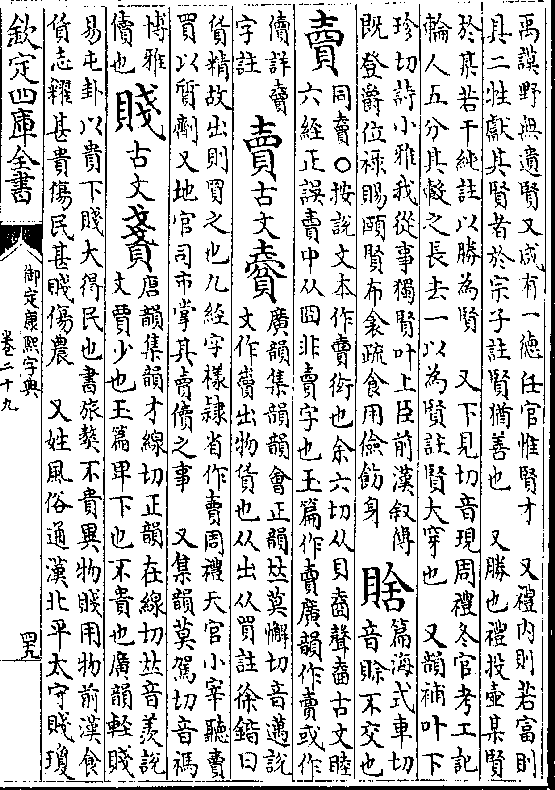 禹謨野無遺賢又咸有一德任官惟賢才　又禮內則若富則
具二牲獻其賢者於宗子註賢猶善也　又勝也禮投壺某賢
於某若干純註以勝為賢　又下見切音現周禮冬官考工記
輪人五分其轂之長去一以為賢註賢大穿也　又韻補叶下
珍切詩小雅我從事獨賢叶上臣前漢叙傳
既登爵位祿賜頤賢布衾疏食用儉飭身
賒
篇海式車切
音賒不交也
賣
同賣○按說文本作𧶠衒也余六切从貝𡍬聲𡍬古文睦
六經正誤賣中从囧非賣字也玉篇作賣廣韻作賣或作
儥詳賣
字註
賣
古文
𧷓
廣韻集韻韻會正韻𠀤莫懈切音邁說
文作𧷓出物貨也从出从買註徐鍇曰
貨精故出則買之也九經字樣隸省作賣周禮天官小宰聽賣
買以質劑又地官司市掌其賣儥之事　又集韻莫駕切音禡
博雅
儥也
賤
古文
𧶤
唐韻集韻才線切正韻在線切𠀤音羨說
文賈少也玉篇卑下也不貴也廣韻輕賤
易屯卦以貴下賤大得民也書旅獒不貴異物賤用物前漢食
貨志糴甚貴傷民甚賤傷農　又姓風俗通漢北平太守賤瓊
欽定四庫全書
御定康熙字典
卷二十九
四九